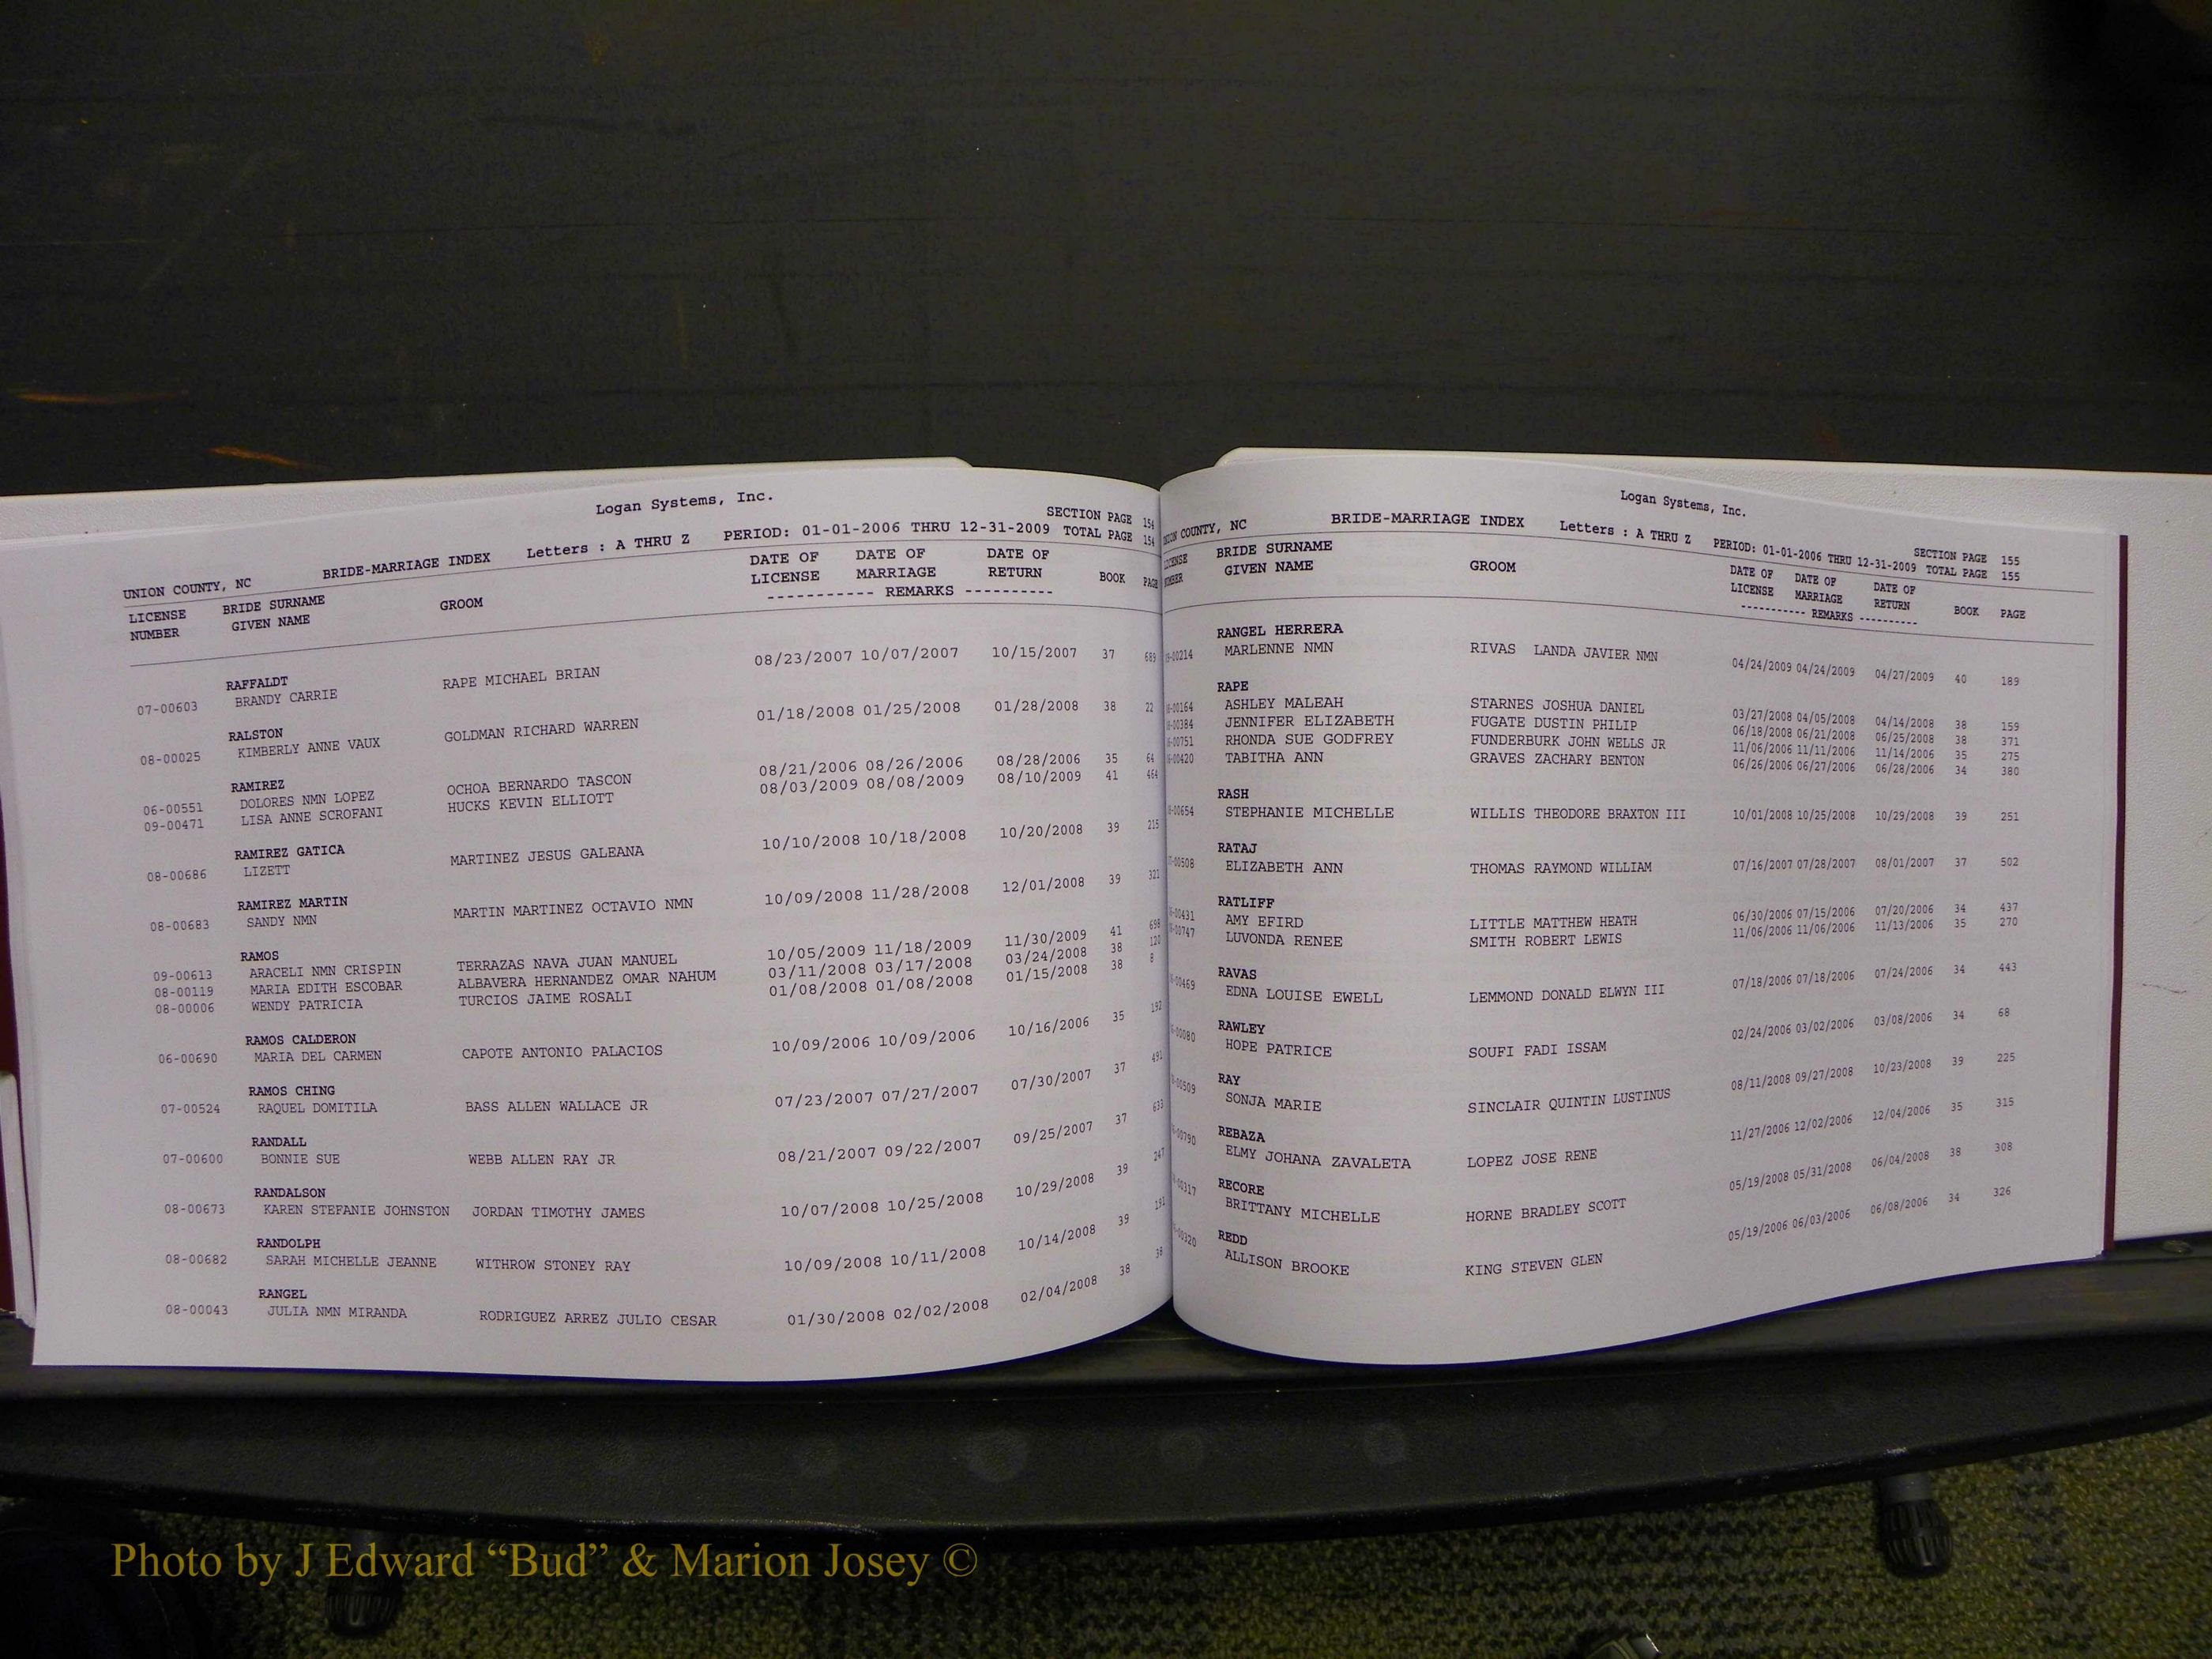 Logan Systems, Inc.
SECTION PAGE 154
UNION COUNTY, NC BRIDE-MARRIAGE INDEX Letters : A THRU Z PERIOD: 01-01-2006 THRU 12-31-2009 TOTAL PAGE 154
LICENSE BRIDE SURNAME GROOM DATE OF DATE OF DATE OF BOOK PAGE
NUMBER GIVEN NAME LICENSE MARRIAGE RETURN
----------- REMARKS ----------
RAFFALDT
07-00603 BRANDY CARRIE RAPE MICHAEL BRIAN 08/23/2007 10/07/2007 10/15/2007 37 689
RALSTON
08-00025 KIMBERLY ANNE VAUX GOLDMAN RICHARD WARREN 01/18/2008 01/25/2008 01/28/2008 38 22
RAMIREZ
06-00551 DOLORES NMN LOPEZ OCHOA BERNARDO TASCON 08/21/2006 08/26/2006 08/28/2006 35 64
09-00471 LISA ANNE SCROFANI HUCKS KEVIN ELLIOTT 08/03/2009 08/08/2009 08/10/2009 41 464
RAMIREZ GATICA
08-00686 LIZETT MARTINEZ JESUS GALEANA 10/10/2008 10/18/2008 10/20/2008 39 215
RAMIREZ MARTIN
08-00683 SANDY NMN MARTIN MARTINEZ OCTAVIO NMN 10/09/2008 11/28/2008 12/01/2008 39 321
RAMOS
09-00613 ARACELI NMN CRISPIN TERRAZAS NAVA JUAN MANUEL 10/05/2009 11/18/2009 11/30/2009 41 698
08-00119 MARIA EDITH ESCOBAR ALBAVERA HERNANDEZ OMAR NAHUM 03/11/2008 03/17/2008 03/24/2008 38 120
08-00006 WENDY PATRICIA TURCIOS JAIME ROSALI 01/08/2008 01/08/2008 01/15/2008 38 8
RAMOS CALDERON
06-00690 MARIA DEL CARMEN CAPOTE ANTONIO PALACIOS 10/09/2006 10/09/2006 10/16/2006 35 192
RAMOS CHING
07-00524 RAQUEL DOMITILA BASS ALLEN WALLACE JR 07/23/2007 07/27/2007 07/30/2007 37 491
RANDALL
07-00600 BONNIE SUE WEBB ALLEN RAY JR 08/21/2007 09/22/2007 09/25/2007 37 633
RANDALSON
08-00673 KAREN STEFANIE JOHNSTON JORDAN TIMOTHY JAMES 10/07/2008 10/25/2008 10/29/2008 39 247
RANDOLPH
08-00682 SARAH MICHELLE JEANNE WITHROW STONEY RAY 10/09/2008 10/11/2008 10/14/2008 39 191
RANGEL
08-00043 JULIA NMN MIRANDA RODRIGUEZ ARREZ JULIO CESAR 01/30/2008 02/02/2008 02/04/2008 38 38
Logan Systems, Inc.
SECTION PAGE 155
UNION COUNTY, NC BRIDE-MARRIAGE INDEX Letters : A THRU Z PERIOD: 01-01-2006 THRU 12-31-2009 TOTAL PAGE 155
LICENSE BRIDE SURNAME GROOM DATE OF DATE OF DATE OF BOOK PAGE
NUMBER GIVEN NAME LICENSE MARRIAGE RETURN
----------- REMARKS ----------
RANGEL HERRERA
-00214 MARLENNE NMN RIVAS LANDA JAVIER NMN 04/24/2009 04/24/2009 04/27/2009 40 189
RAPE
-00164 ASHLEY MALEAH STARNES JOSHUA DANIEL 03/27/2008 04/05/2008 04/14/2008 38 159
-00384 JENNIFER ELIZABETH FUGATE DUSTIN PHILIP 06/18/2008 06/21/2008 06/25/2008 38 371
-00751 RHONDA SUE GODFREY FUNDERBURK JOHN WELLS JR 11/06/2006 11/11/2006 11/14/2006 35 275
-00420 TABITHA ANN GRAVES ZACHARY BENTON 06/26/2006 06/27/2006 06/28/2006 34 380
RASH
-00654 STEPHANIE MICHELLE WILLIS THEODORE BRAXTON III 10/01/2008 10/25/2008 10/29/2008 39 251
RATAJ
-00508 ELIZABETH ANN THOMAS RAYMOND WILLIAM 07/16/2007 07/28/2007 08/01/2007 37 502
RATLIFF
-00431 AMY EFIRD LITTLE MATTHEW HEATH 06/30/2006 07/15/2006 07/20/2006 34 437
-00747 LUVONDA RENEE SMITH ROBERT LEWIS 11/06/2006 11/06/2006 11/13/2006 35 270
RAVAS
-00469 EDNA LOUISE EWELL LEMMOND DONALD ELWYN III 07/18/2006 07/18/2006 07/24/2006 34 443
RAWLEY
-00080 HOPE PATRICE SOUFI FADI ISSAM 02/24/2006 03/02/2006 03/08/2006 34 68
RAY
-00509 SONJA MARIE SINCLAIR QUINTIN LUSTINUS 08/11/2008 09/27/2008 10/23/2008 39 225
REBAZA
-00790 ELMY JOHANA ZAVALETA LOPEZ JOSE RENE 11/27/2006 12/02/2006 12/04/2006 35 315
RECORE
-00317 BRITTANY MICHELLE HORNE BRADLEY SCOTT 05/19/2008 05/31/2008 06/04/2008 38 308
REDD
-00320 ALLISON BROOKE KING STEVEN GLEN 05/19/2006 06/03/2006 06/08/2006 34 326
Photo by J Edward “Bud” & Marion Josey ©